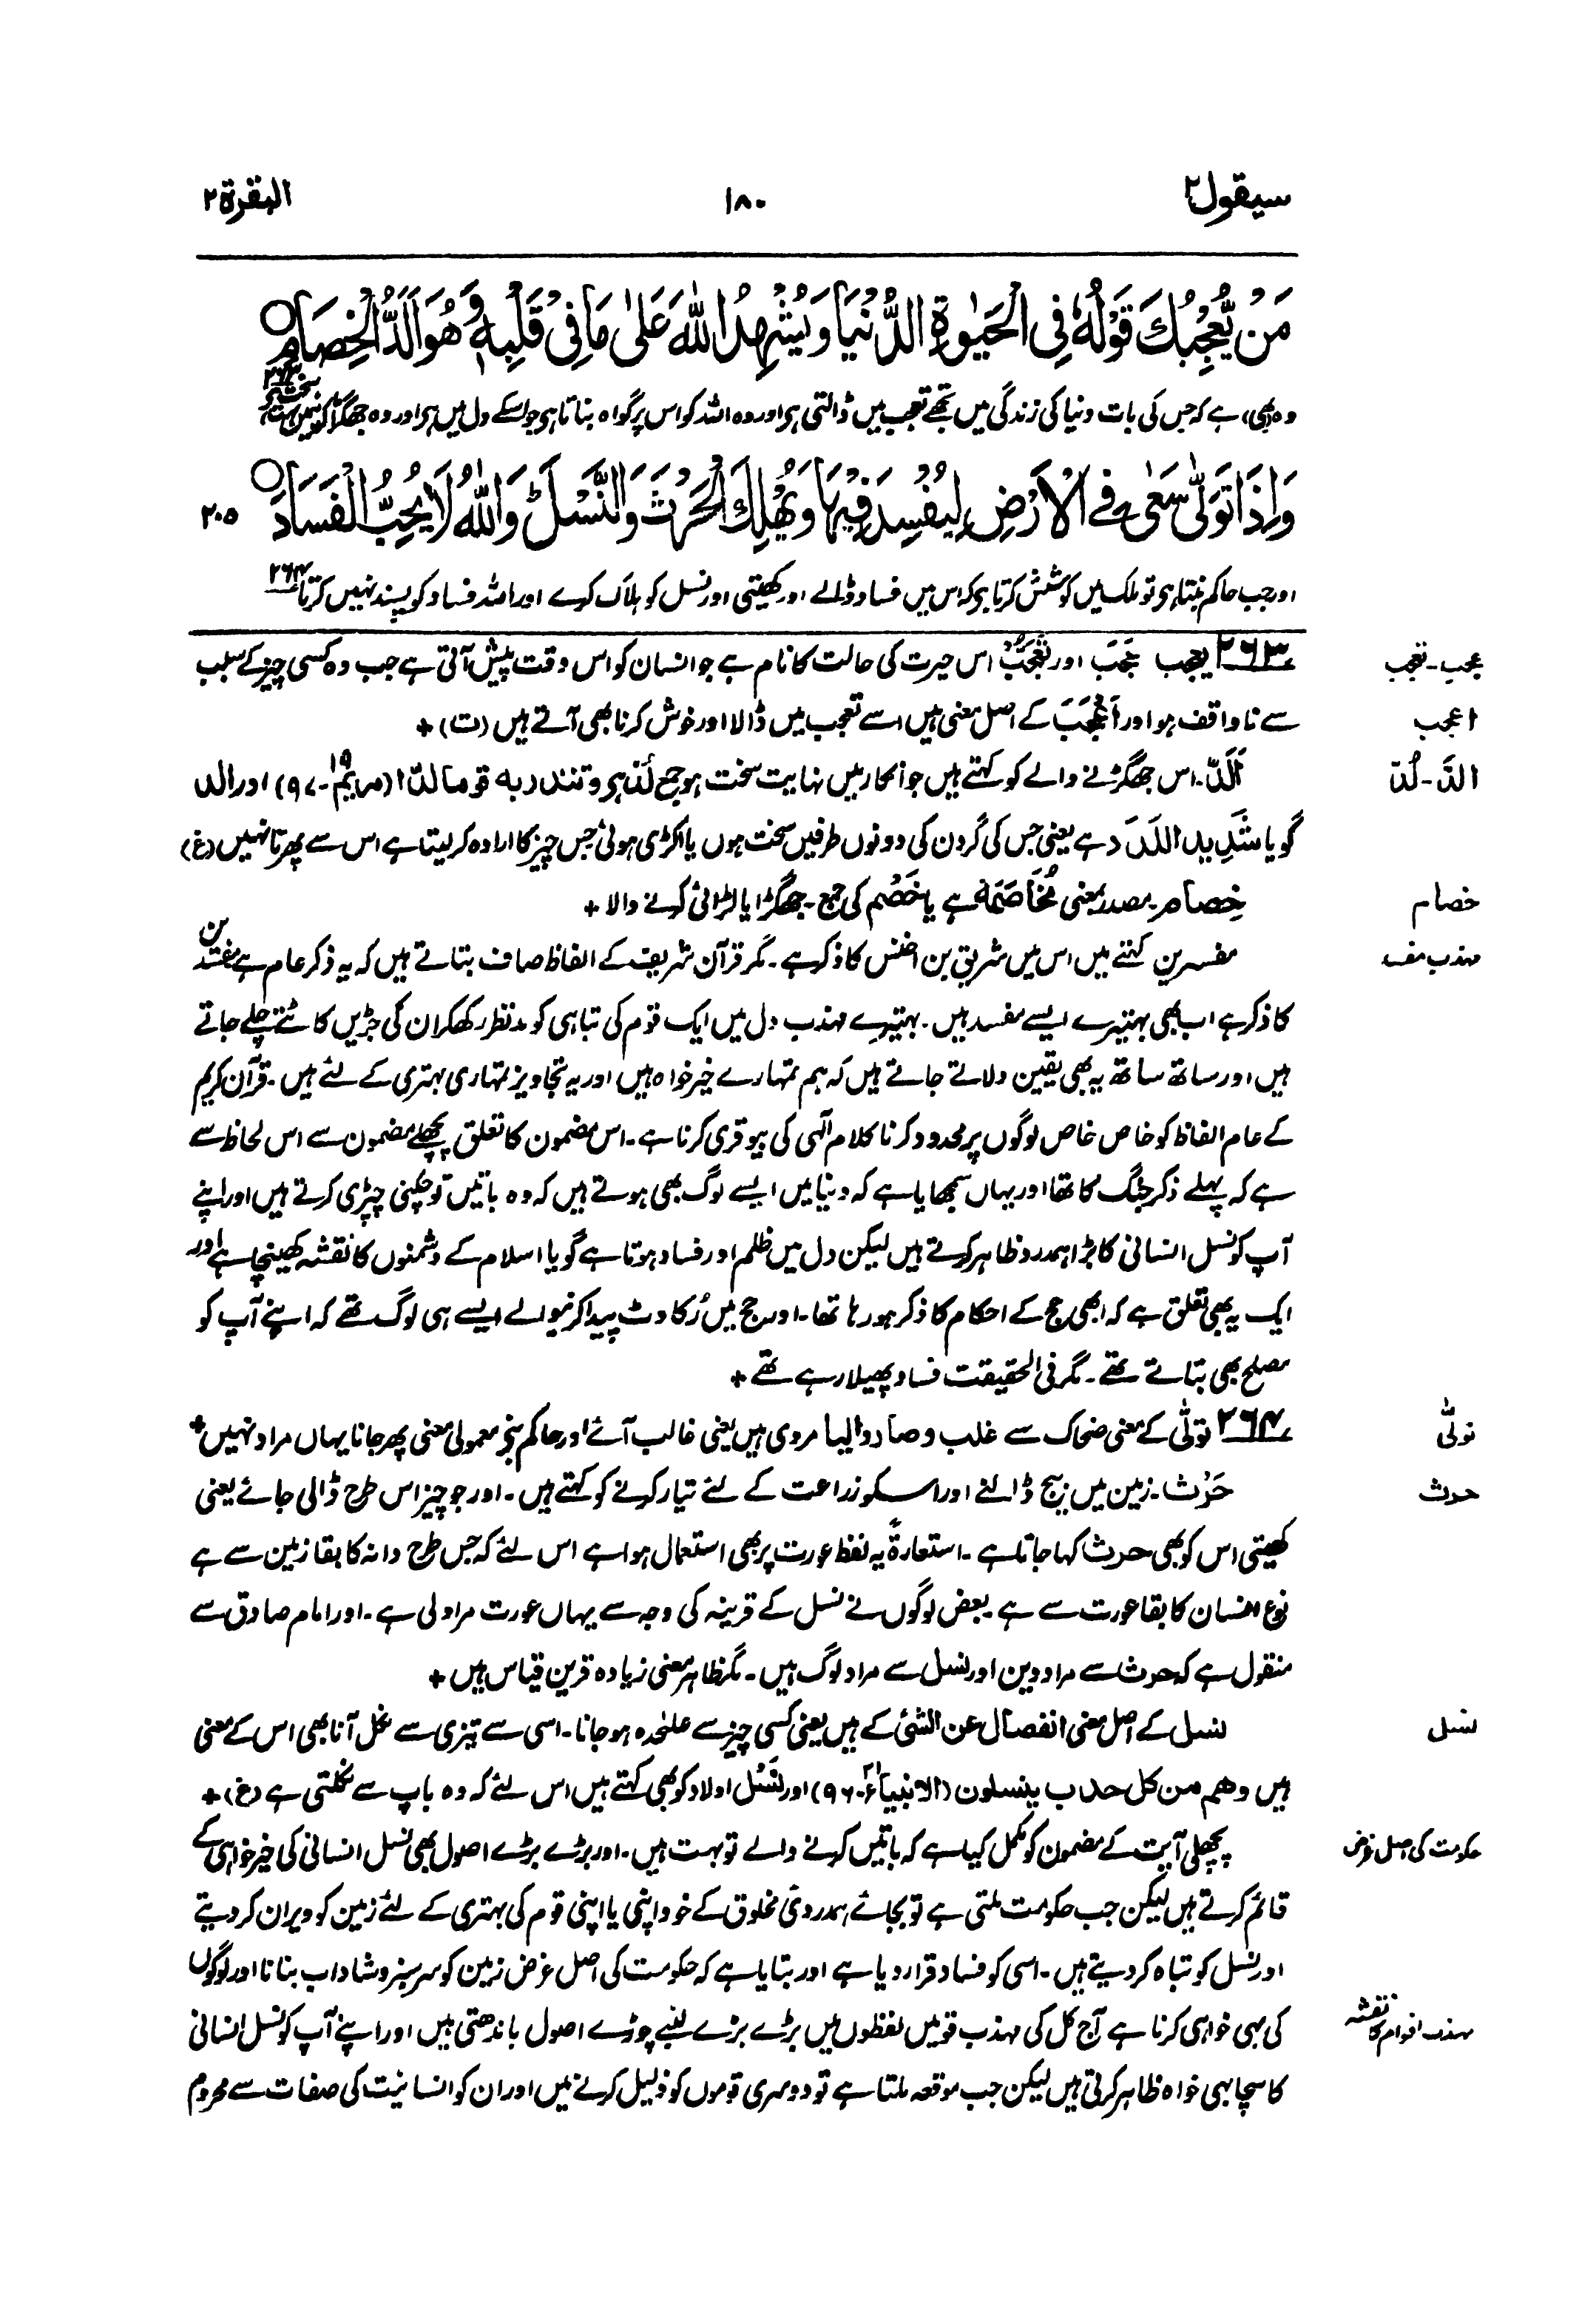 سیقول ۲
۱۸۰
البقرة ۲
مَنْ يُّعْجِبُكَ قَوْلُهٗ فِی الْحَيٰوةِ الدُّنْيَا وَيُشْهِدُ اللّٰهَ عَلٰی مَا فِیْ قَلْبِهٖ وَهُوَ اَلَدُّ الْخِصَامِ ○
وہ (بھی) ہے کہ جس کی بات دنیا کی زندگی میں تجھے تعجب میں ڈالتی ہی اور وہ اللہ کو اس پر گواہ بناتا ہی جو اسکے دل میں ہی اور وہ جھگڑا کرنیمیں بہت سخت ہی ۲۶۳
وَاِذَا تَوَلّٰی سَعٰی فِے الْاَرْضِ لِيُفْسِدَ فِيْهَا وَيُهْلِكَ الْحَرْثَ وَالنَّسْلَ ؕ وَاللّٰهُ لَا يُحِبُّ الْفَسَادَ ○
۲۰۵
اور جب حاکم بنتا ہی تو ملک میں کوشش کرتا ہی کہ اس میں فساد ڈالے اور کھیتی اور نسل کو ہلاک کرے اور اللہ فساد کو پسند نہیں کرتا ۲۶۴
عجب ـ تعجب
۲۶۳ یعجب عَجَبَ اور تَعَجُّبٌ اس حیرت کی حالت کا نام ہے جو انسان کو اس وقت پیش آتی ہے جب وہ کسی چیز کے سبب
اعجب
سے ناواقف ہو اور اَعْجَبَ کے اصل معنی ہیں اسے تعجب میں ڈالا اور خوش کرنا بھی آتے ہیں (ت) +
الدّ ـ لُدّ
اَلَدّ ـ اس جھگڑنے والے کو کہتے ہیں جو انکار میں نہایت سخت ہو جمع لُدّ ہی وتنذر به قوما لدّا (مریم ۱۹ ـ ۹۷) اور الد
گویا شَدِید اللَدَد ہے یعنی جس کی گردن کی دونوں طرفیں سخت ہوں یا اکڑی ہوئی جس چیز کا ارادہ کر لیتا ہے اس سے پھرتا نہیں (غ)
خصام
خِصام ـ مصدر بمعنی مُخَاصَمَة ہے یا خَصْم کی جمع ـ جھگڑا یا لڑائی کرنے والا +
مہذب مفسد
مفسرین کہتے ہیں اس میں شریق بن اخنس کا ذکر ہے ـ مگر قرآن شریف کے الفاظ صاف بتاتے ہیں کہ یہ ذکر عام ہے مفسدین
کا ذکر ہے اب بھی بہتیرے ایسے مفسد ہیں ـ بہتیرے مہذب دل میں ایک قوم کی تباہی کو مدنظر رکھکر ان کی جڑیں کاٹتے چلے جاتے
ہیں اور ساتھ ساتھ یہ بھی یقین دلاتے جاتے ہیں کہ ہم تمہارے خیرخواہ ہیں اور یہ تجاویز تمہاری بہتری کے لئے ہیں ـ قرآن کریم
کے عام الفاظ کو خاص خاص لوگوں پر محدود کرنا کلام الٰہی کی بیوقری کرنا ہے ـ اس مضمون کا تعلق پچھلے مضمون سے اس لحاظ سے
ہے کہ پہلے ذکر جنگ کا تھا اور یہاں سمجھایا ہے کہ دنیا میں ایسے لوگ بھی ہوتے ہیں کہ وہ باتیں تو چکنی چپڑی کرتے ہیں اور اپنے
آپ کو نسل انسانی کا بڑا ہمدرد ظاہر کرتے ہیں لیکن دل میں ظلم اور فساد ہوتا ہے گویا اسلام کے دشمنوں کا نقشہ کھینچا ہے اور
ایک یہ بھی تعلق ہے کہ ابھی حج کے احکام کا ذکر ہو رہا تھا ـ اور حج میں رُکاوٹ پیدا کرنیوالے ایسے ہی لوگ تھے کہ اپنے آپ کو
مصلح بھی بتاتے تھے ـ مگر فی الحقیقت فساد پھیلا رہے تھے +
تولّٰی
۲۶۴ تولّٰی کے معنی ضحاک سے غلب وصار والیا مروی ہیں یعنی غالب آئے اور حاکم بنے معمولی معنی پھر جانا یہاں مراد نہیں +
حرث
حَرْث ـ زمین میں بیج ڈالنے اور اسکو زراعت کے لئے تیار کرنے کو کہتے ہیں ـ اور جو چیز اس طرح ڈالی جائے یعنی
کھیتی اس کو بھی حرث کہا جاتا ہے ـ استعارةً یہ لفظ عورت پر بھی استعمال ہوا ہے اس لئے کہ جس طرح دانہ کا بقا زمین سے ہے
نوع انسان کا بقا عورت سے ہے ـ بعض لوگوں نے نسل کے قرینہ کی وجہ سے یہاں عورت مراد لی ہے ـ اور امام صادق سے
منقول ہے کہ حرث سے مراد دین اور نسل سے مراد لوگ ہیں ـ مگر ظاہر معنی زیادہ قرین قیاس ہیں +
نسل
نسل کے اصل معنی انفصال عن الشئ کے ہیں یعنی کسی چیز سے علٰحدہ ہو جانا ـ اسی سے تیزی سے نکل آنا بھی اس کے معنی
ہیں وهم من كل حدب ينسلون (الانبیاء ۲۱ ـ ۹۶) اور نَسْل اولاد کو بھی کہتے ہیں اس لئے کہ وہ باپ سے نکلتی ہے (غ) +
حکومت کی اصل غرض
پچھلی آیت کے مضمون کو مکمل کیا ہے کہ باتیں کرنے والے تو بہت ہیں ـ اور بڑے بڑے اصول بھی نسل انسانی کی خیرخواہی کے
قائم کرتے ہیں لیکن جب حکومت ملتی ہے تو بجائے ہمدردئ مخلوق کے خود اپنی یا اپنی قوم کی بہتری کے لئے زمین کو ویران کر دیتے
اور نسل کو تباہ کر دیتے ہیں ـ اسی کو فساد قرار دیا ہے اور بتایا ہے کہ حکومت کی اصل غرض زمین کو سرسبز و شاداب بنانا اور لوگوں
مہذب اقوام کا نقشہ
کی بہی خواہی کرنا ہے آج کل کی مہذب قومیں لفظوں میں بڑے بڑے لنبے چوڑے اصول باندھتی ہیں اور اپنے آپ کو نسل انسانی
کا سچا بہی خواہ ظاہر کرتی ہیں لیکن جب موقعہ ملتا ہے تو دوسری قوموں کو ذلیل کرنے میں اور ان کو انسانیت کی صفات سے محروم